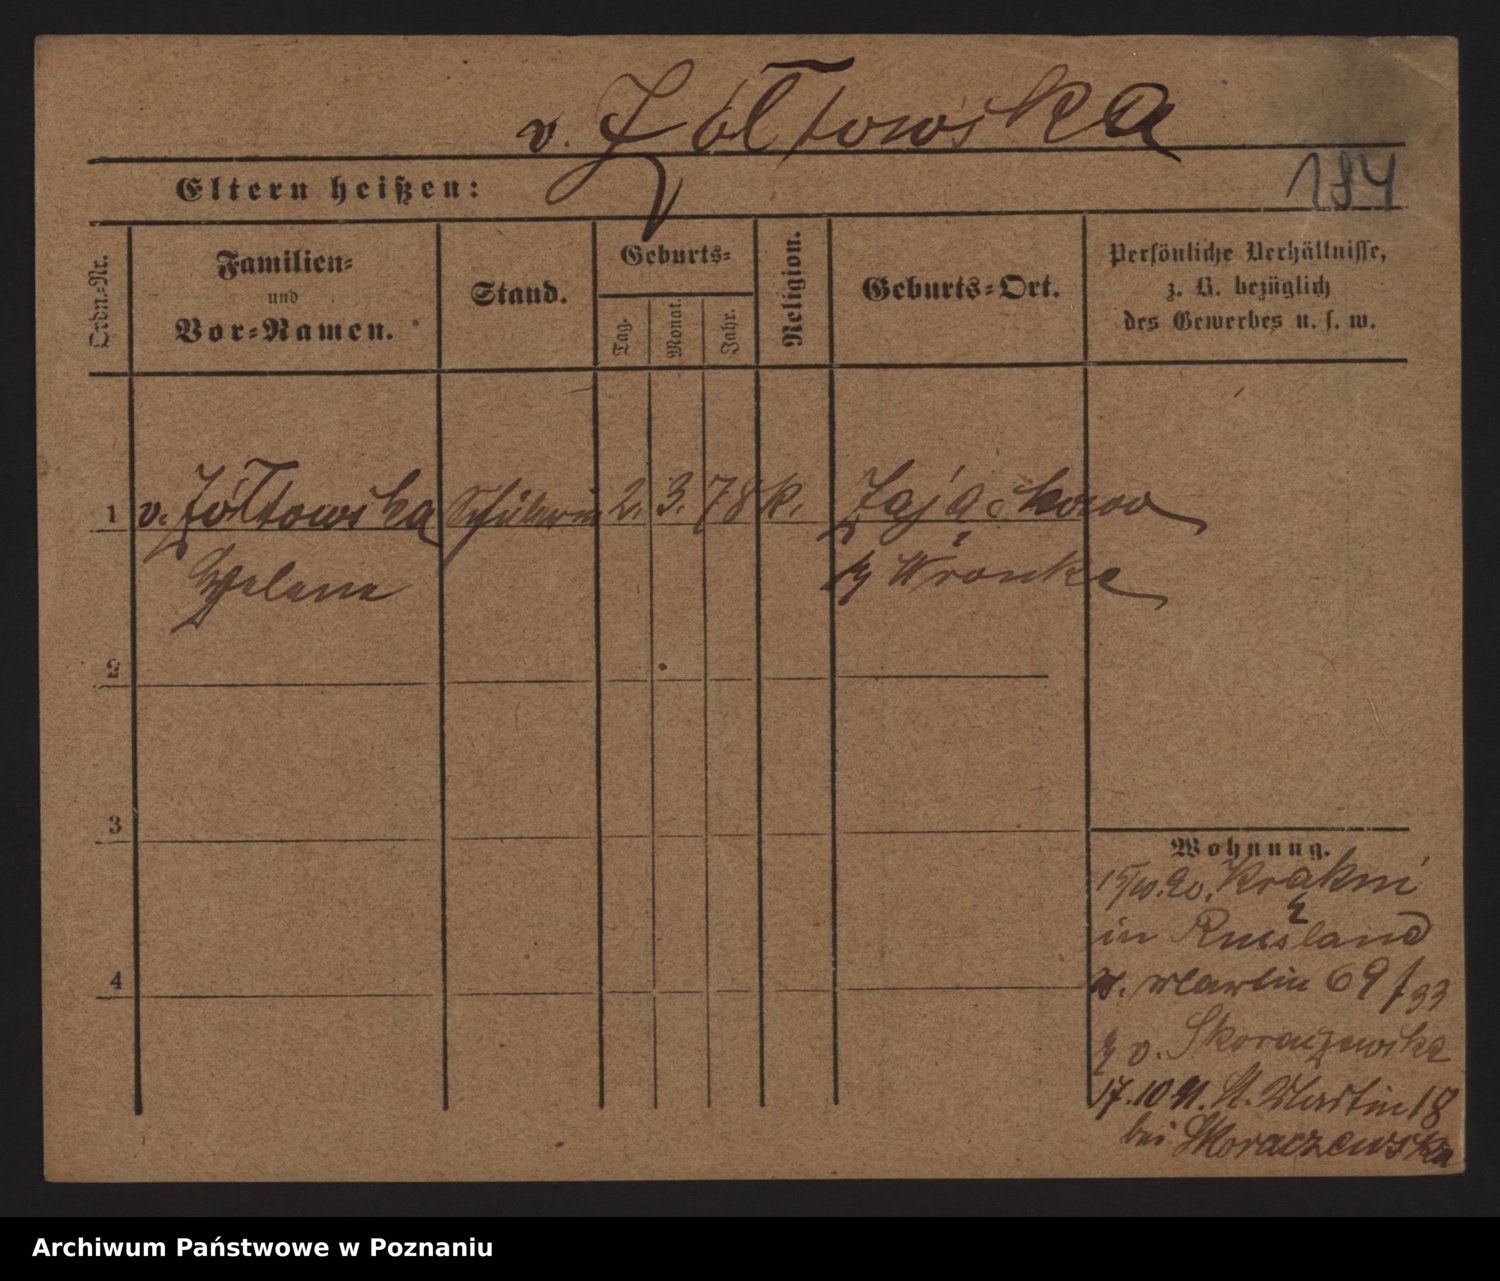 v. Żółtowska
Eltern heißen:
184
Ordn.-Nr.
Familien-
und
Vor-Namen.
Stand.
Geburts-
Tag.
Monat.
Jahr.
Religion.
Geburts-Ort.
Persönliche Verhältnisse,
z. B. bezüglich
des Gewerbes u. s. w.
1 v. Żółtowska Schülerin 2. 3. 78 k. Zajączkowo
Helena Wronke
2
3
4
Wohnung.
in Russland
Martin 69
v. Skoraczewska
17.10 91. St. Martin 18
bei Skoraczewska
Archiwum Państwowe w Poznaniu